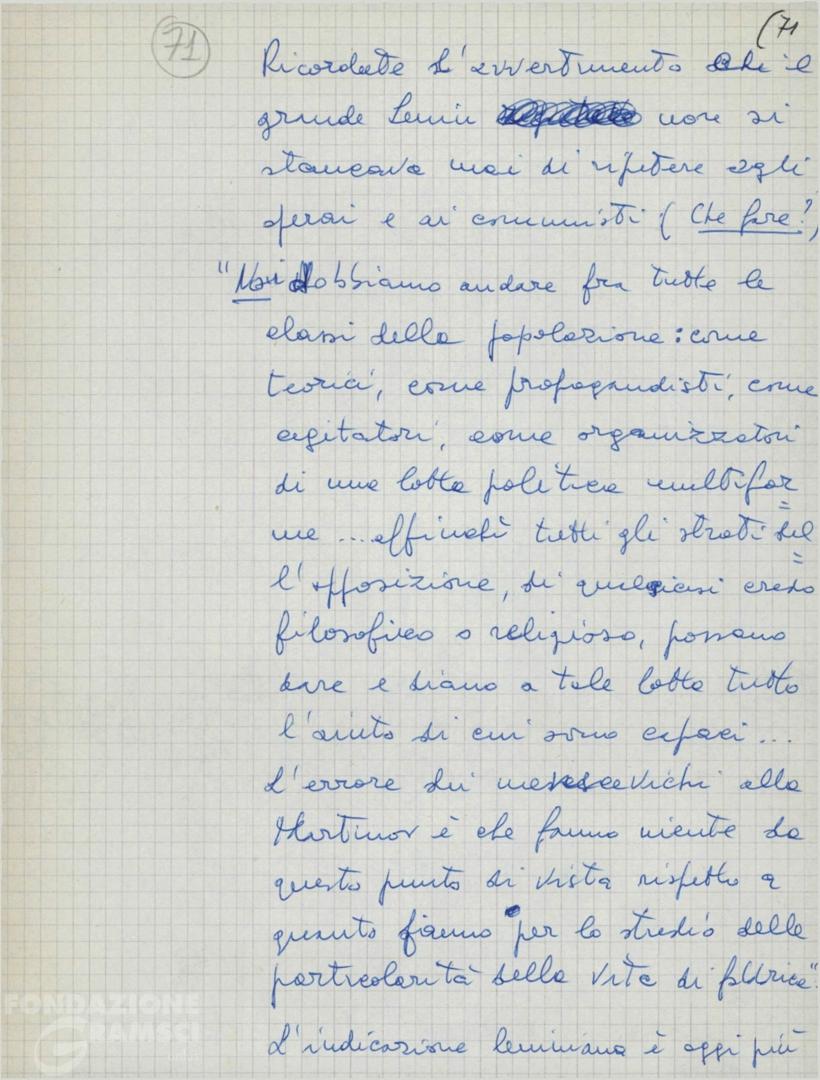 71
(71
Ricordate l'avvertimento che il
grande Lenin non si
stancava mai di ripetere agli
operai e ai comunisti (Che fare?,
"Noi dobbiamo andare fra tutte le
classi della popolazione: come
teorici, come propagandisti, come
agitatori, come organizzatori
di una lotta politica multifor
me ... affinchè tutti gli strati del
l'opposizione, di qualsiasi credo
filosofico o religioso, possano
dare e diano a tale lotta tutto
l'aiuto di cui sono capaci ...
L'errore dei menscevichi alla
Martinov è che fanno niente da
questo punto di vista rispetto a
quanto fanno per lo studio delle
particolarità della vita di fabbrica".
L'indicazione leniniana è oggi più
FONDAZIONE
GRAMSCI